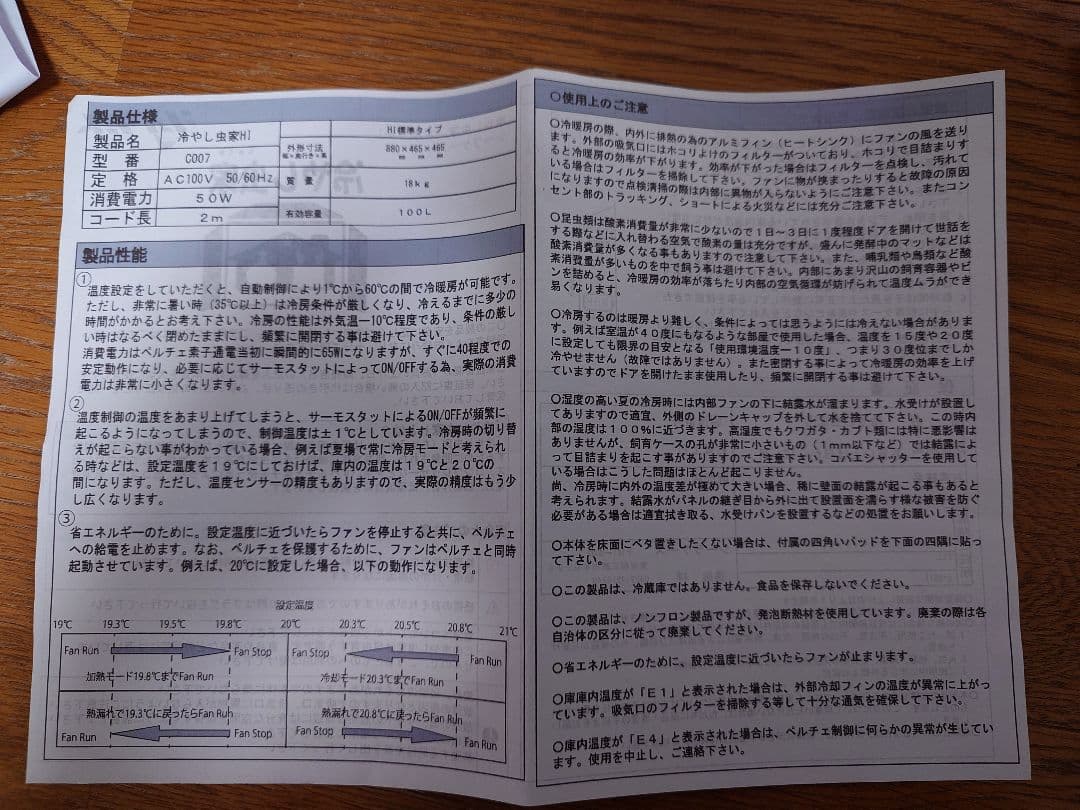 製品仕様
製品名 冷やし虫家HI 外形寸法 幅×奥行き×高 HI標準タイプ 880×465×465 mm mm mm
型番 C007
定格 AC100V 50/60Hz 質量 18kg
消費電力 50W
コード長 2m 有効容量 100L
製品性能
①
温度設定をしていただくと、自動制御により1℃から60℃の間で冷暖房が可能です。
ただし、非常に暑い時（35℃以上）は冷房条件が厳しくなり、冷えるまでに多少の
時間がかかるとお考え下さい。冷房の性能は外気温ー10℃程度であり、条件の厳し
い時はなるべく閉めたままにし、頻繁に開閉する事は避けて下さい。
消費電力はペルチェ素子通電当初に瞬間的に65Wになりますが、すぐに40程度での
安定動作になり、必要に応じてサーモスタットによってON/OFFする為、実際の消費
電力は非常に小さくなります。
②
温度制御の温度をあまり上げてしまうと、サーモスタットによるON/OFFが頻繁に
起こるようになってしまうので、制御温度は±1℃としています。冷房時の切り替
えが起こらない事がわかっている場合、例えば夏場で常に冷房モードと考えられ
る時などは、設定温度を19℃にしておけば、庫内の温度は19℃と20℃の
間になります。ただし、温度センサーの精度もありますので、実際の精度はもう少
し広くなります。
③
省エネルギーのために、設定温度に近づいたらファンを停止すると共に、ペルチェ
への給電を止めます。なお、ペルチェを保護するために、ファンはペルチェと同時
起動させています。例えば、20℃に設定した場合、以下の動作になります。
設定温度
19℃ 19.3℃ 19.5℃ 19.8℃ 20℃ 20.3℃ 20.5℃ 20.8℃ 21℃
Fan Run Fan Stop Fan Stop Fan Run
加熱モード19.8℃までFan Run 冷却モード20.3℃までFan Run
熱漏れで19.3℃に戻ったらFan Run 熱漏れで20.8℃に戻ったらFan Run
Fan Run Fan Stop Fan Stop Fan Run
〇使用上のご注意
〇冷暖房の際、内外に排熱の為のアルミフィン（ヒートシンク）にファンの風を送り
ます。外部の吸気口にはホコリよけのフィルターがついており、ホコリで目詰まりす
ると冷暖房の効率が下がります。効率が下がった場合はフィルターを点検し、汚れて
いる場合はフィルターを掃除して下さい。ファンに物が挟まったりすると故障の原因
になりますので点検清掃の際は内部に異物が入らないようにご注意下さい。またコン
セント部のトラッキング、ショートによる火災などには充分ご注意下さい。
〇昆虫類は酸素消費量が非常に少ないので1日～3日に1度程度ドアを開けて世話を
する際などに入れ替わる空気で酸素の量は充分ですが、盛んに発酵中のマットなどは
酸素消費量が多くなる事もありますので注意して下さい。また、哺乳類や鳥類など酸
素消費量が多いものを中で飼う事は避けて下さい。内部にあまり沢山の飼育容器やビ
ンを詰めると、冷暖房の効率が落ちたり内部の空気循環が妨げられて温度ムラができ
易くなります。
〇冷房するのは暖房より難しく、条件によっては思うようには冷えない場合がありま
す。例えば室温が40度にもなるような部屋で使用した場合、温度を15度や20度
に設定しても限界の目安となる「使用環境温度ー10度」、つまり30度位までしか
冷やせません（故障ではありません）。また密閉する事によって冷暖房の効率を上げ
ていますのでドアを開けたまま使用したり、頻繁に開閉する事は避て下さい。
〇湿度の高い夏の冷房時には内部ファンの下に結露水が溜まります。水受けが設置し
てありますので適宜、外側のドレーンキャップを外して水を捨てて下さい。この時内
部の湿度は100％に近づきます。高湿度でもクワガタ・カブト類には特に悪影響は
ありませんが、飼育ケースの孔が非常に小さいもの（1mm以下など）では結露によ
って目詰まりを起こす事がありますのでご注意下さい。コバエシャッターを使用して
いる場合はこうした問題はほとんど起こりません。
尚、冷房時に内外の温度差が極めて大きい場合、稀に壁面の結露が起こる事もあると
考えられます。結露水がパネルの継ぎ目から外に出て設置面を濡らす様な被害を防ぐ
必要がある場合は適宜拭き取る、水受けパンを設置するなどの処置をお願いします。
〇本体を床面にベタ置きしたくない場合は、付属の四角いパッドを下面の四隅に貼っ
て下さい。
〇この製品は、冷蔵庫ではありません。食品を保存しないでください。
〇この製品は、ノンフロン製品ですが、発泡断熱材を使用しています。廃棄の際は各
自治体の区分に従って廃棄してください。
〇省エネルギーのために、設定温度に近づいたらファンが止まります。
〇庫庫内温度が「E1」と表示された場合は、外部冷却フィンの温度が異常に上がっ
ています。吸気口のフィルターを掃除する等して十分な通気を確保して下さい。
〇庫内温度が「E4」と表示された場合は、ペルチェ制御に何らかの異常が生じてい
ます。使用を中止し、ご連絡下さい。